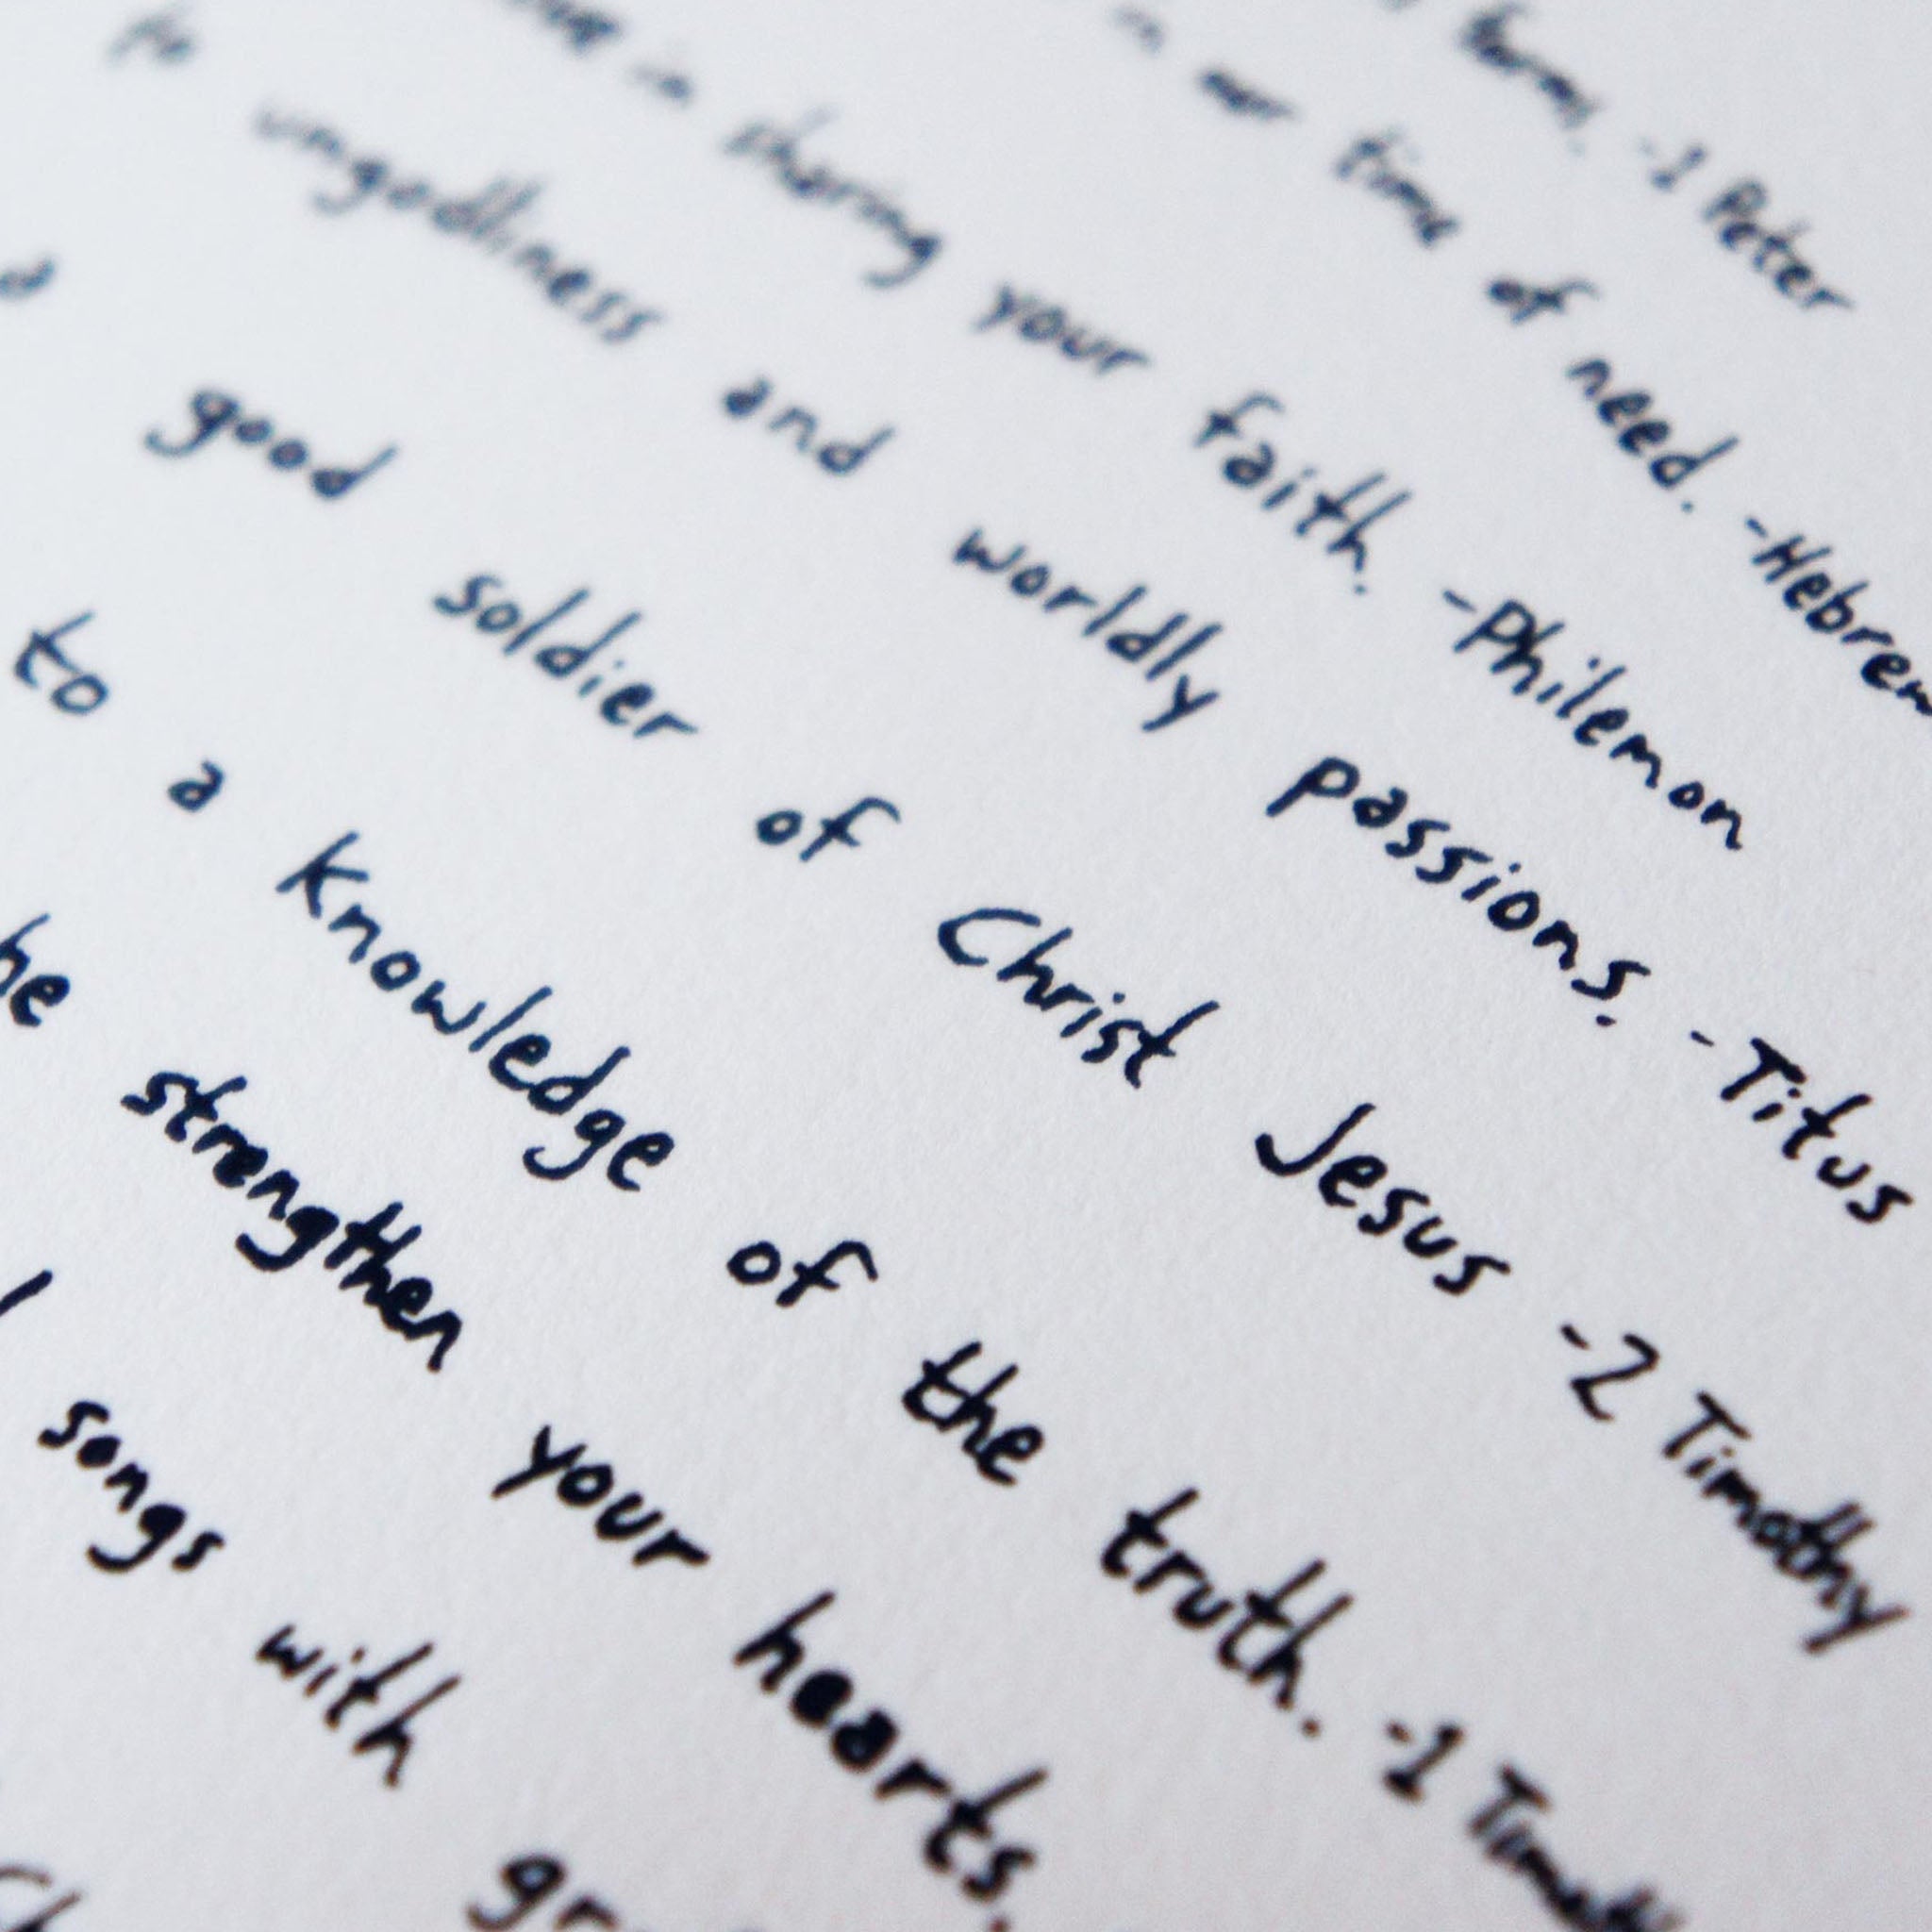 -1 Peter
time of need. -Hebrew
in sharing your faith. -Philemon
to ungodliness and worldly passions. -Titus
a good soldier of Christ Jesus -2 Timothy
to a knowledge of the truth. -1 Timoth
he strengthen your hearts.
songs with